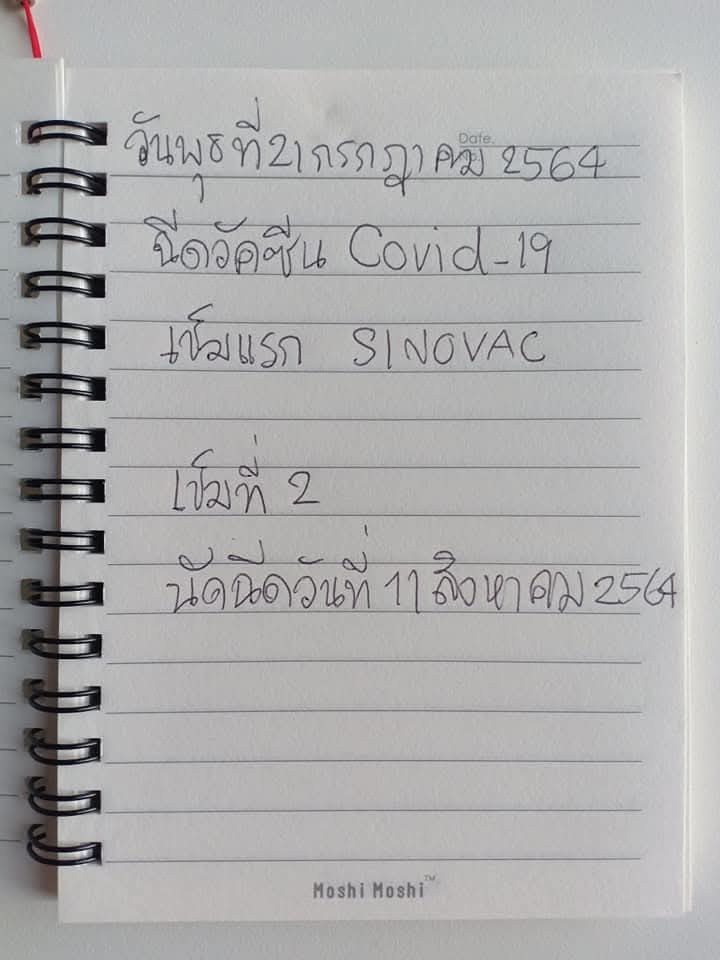 Date.
วันพุธที่ 21 กรกฎาคม 2564
ฉีดวัคซีน Covid-19
เข็มแรก SINOVAC
เข็มที่ 2
นัดฉีดวันที่ 11 สิงหาคม 2564
Moshi Moshi™